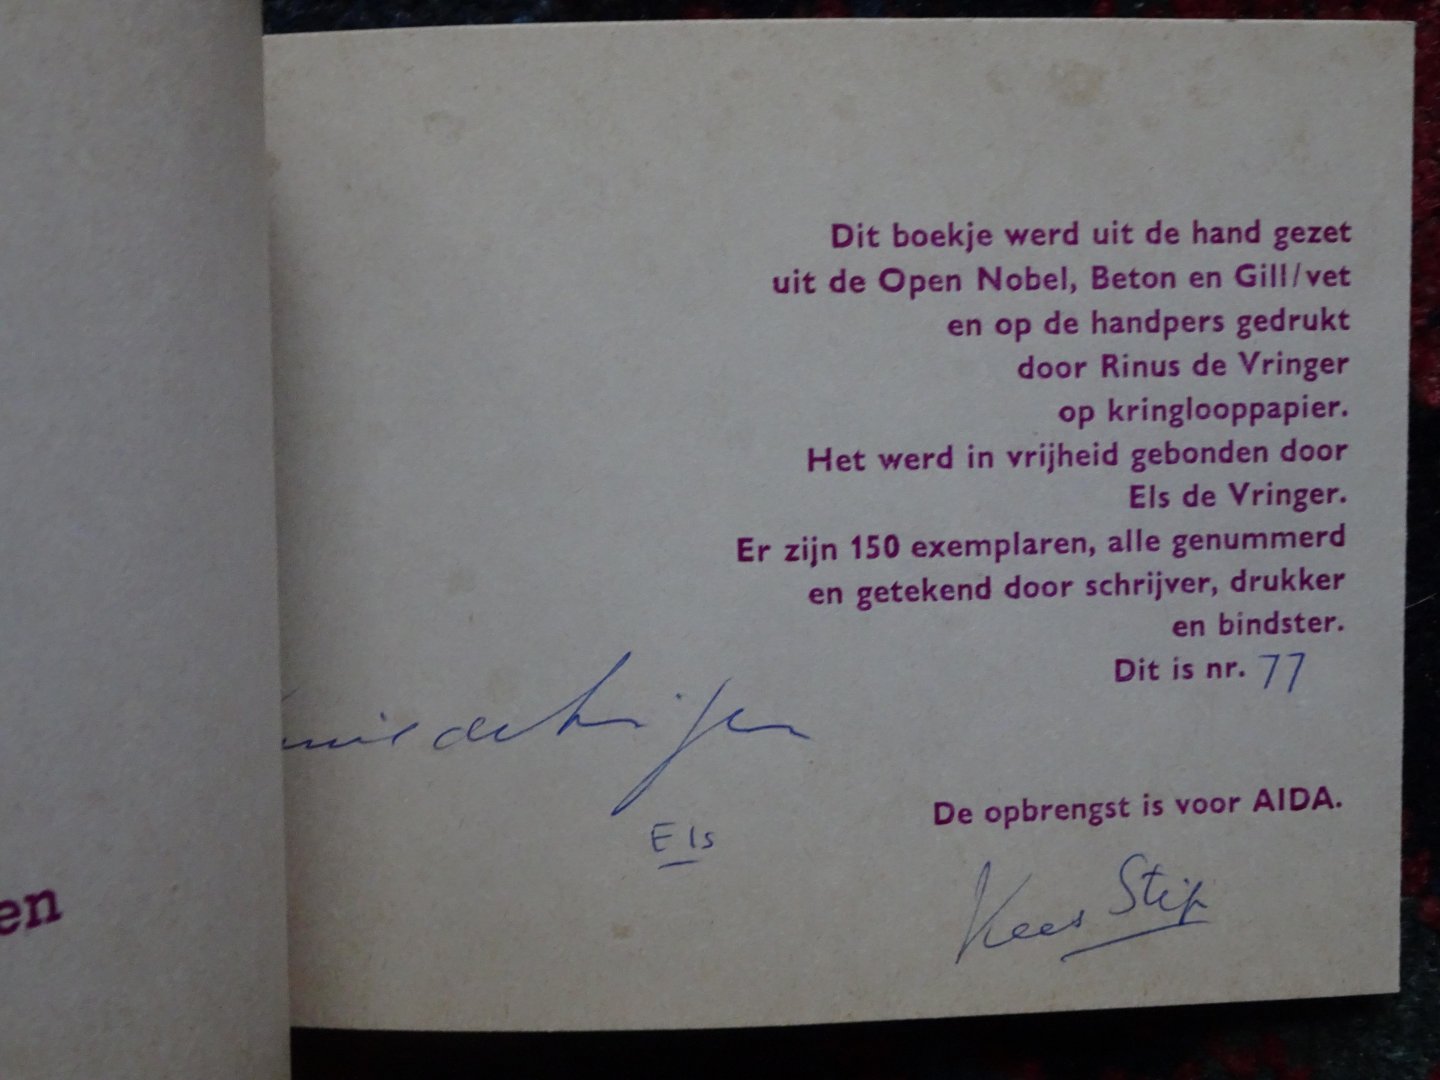 Dit boekje werd uit de hand gezet
uit de Open Nobel, Beton en Gill/vet
en op de handpers gedrukt
door Rinus de Vringer
op kringlooppapier.
Het werd in vrijheid gebonden door
Els de Vringer.
Er zijn 150 exemplaren, alle genummerd
en getekend door schrijver, drukker
en bindster.
Dit is nr. 77
De opbrengst is voor AIDA.
Els
Kees Stip
en